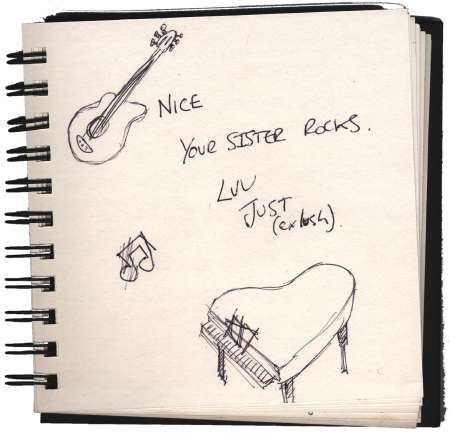 NICE
YOUR SISTER ROCKS.
LUV
JUST
(ex lush).